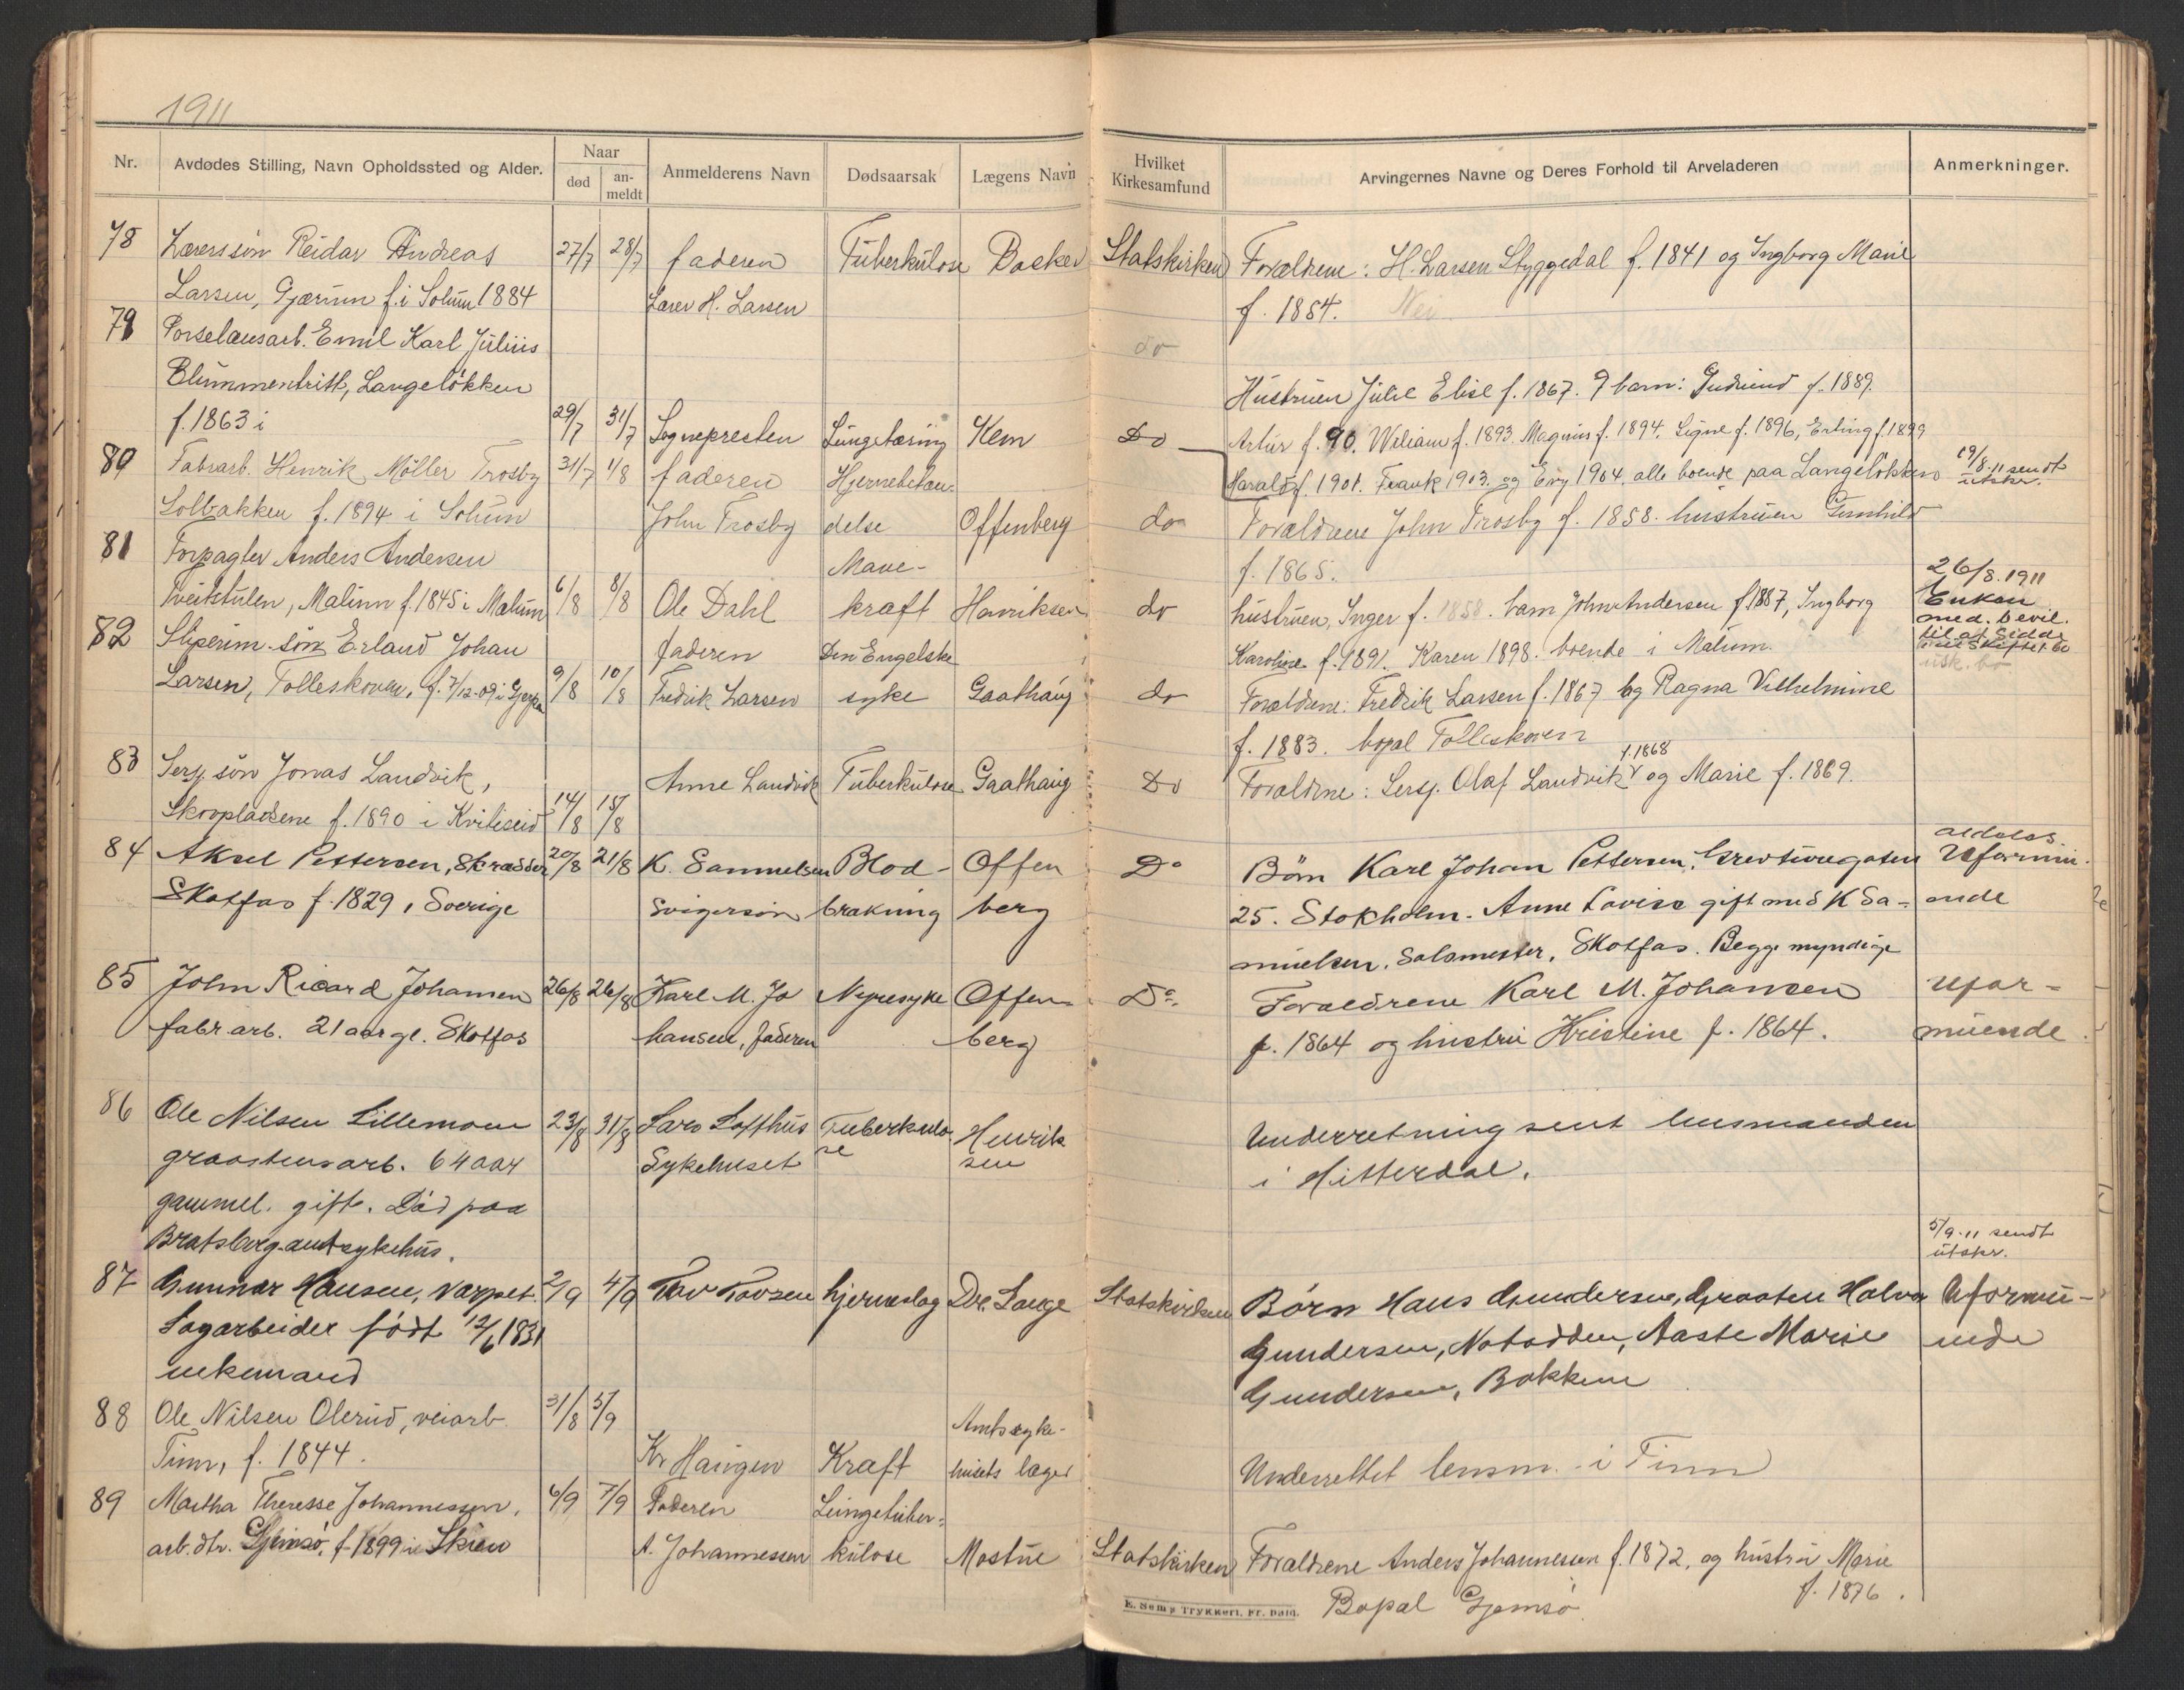 1911
Nr. Avdødes Stilling, Navn Opholdssted og Alder. Naar død an-meldt Anmelderens Navn Dødsaarsak Lægens Navn Hvilket Kirkesamfund Arvingernes Navne og Deres Forhold til Arveladeren Anmerkninger.
78 Lærerssøn Reidar Andreas 27/7 28/7 faderen Tuberkulose Backer Statskirken Forældrene: H. Larsen Styggedal f. 1841 og Ingborg Marie
Larsen, Gjærum f. i Solum 1884 Lærer H. Larsen f. 1854. Nei
79 Porselænsarb. Emil Karl Julius do
Blummentritt, Langeløkken Hustruen Julie Elise f. 1867. 9 barn: Gudrund f. 1889.
f. 1863 i 29/7 31/7 Sognepresten Lungetæring Kem Do Artur f. 90. Wiliam f. 1893. Magnus f. 1894. Signe f. 1896, Erling f. 1899
80 Fabrarb. Henrik Møller Trosby 31/7 1/8 faderen Hjernebetæn- Harald f. 1901. Frank 1903. og Evy 1904. alle boende paa Langeløkken 19/8.11 sendt utskr.
Solbakken f. 1894 i Solum John Trosby delse Offenberg do Forældrene John Trosby f. 1858. hustruen Gunhild
81 Forpagter Anders Andersen Mave- f. 1865.
Tveitstulen, Malum f. 1845 i Malum 6/8 8/8 Ole Dahl kraft Henriksen do hustruen, Inger f. 1858. barn John Andersen f. 1887, Ingborg 26/8.1911 Enken med. bevil. til at sidde
82 Sliperim. søn Erland Johan faderen Den Engelske Karoline f. 1891. Karen 1898. boende i Malum. i uskiftet bo
Larsen, Tolleskoven, f. 7/12-09 i Gjerpen 9/8 10/8 Fredrik Larsen syke Gaathaug do Forældrene: Fredrik Larsen f. 1867 og Ragna Vilhelmine
f. 1883. bopæl Tolleskoven
83 Serg. søn Jonas Landvik, Anne Landvik Tuberkulose Gaathaug Do Forældrene: Serg. Olaf Landvik f. 1868 og Marie f. 1869.
Skovpladsene f. 1890 i Kviteseid 14/8 15/8
84 Aksel Pettersen, Skrædder 20/8 21/8 K. Sammelsen Blod- Offen Do Børn Karl Johan Pettersen, Grevturegaten aldeles Uformu-
Skotfos f. 1829, Sverige Svigersøn brækning berg 25. Stokholm. Anne Lovise gift med K Sa- ende
muelsen. Salamester, Skotfos. Begge myndige
85 John Ricard Johansen 26/8 26/8 Karl M. Jo Nyresyke Offen Do. Forældrene Karl M. Johansen Ufor-
fabr. arb. 21 aar gl. Skotfos hansen, faderen berg f. 1864 og hustru Kristine f. 1864. muende.
86 Ole Nilsen Lillemoen 23/8 31/8 Lars Lofthus Tuberkulo Henrik Underretning sent lensmanden
graastensarb. 64 aar Sykehuset se sen i Hitterdal.
gammel. gift. Død paa
Bratsberg amtsykehus. 5/9.11 sendt utskr.
87 Gunnar Hansen, Værpet. 2/9 4/9 Tov Tovsen hjerneslag Dr. Lange Statskirken Børn Hans Gundersen, Graaten Halvor Uformu-
Sagarbeider født 12/6 1831 Gundersen, Notodden, Aaste Marie ende
enkemand Gundersen, Bakken
88 Ole Nilsen Olerud, veiarb 31/8 5/9 Amtssyke-
Tinn, f. 1844. Kr Haugen Kraft husets læge Underrettet lensm. i Tinn
89 Martha Theresse Johannessen, 6/9 7/9 Faderen Lungetuber-
arb. dtr. Gjemsø, f. 1899 i Skien A. Johannessen kulose Mostue Statskirken Forældrene Anders Johannessen f. 1872, og hustru Marie
f. 1876.
E. Sem's Trykkeri, Fr. hald. Bopæl Gjemsø